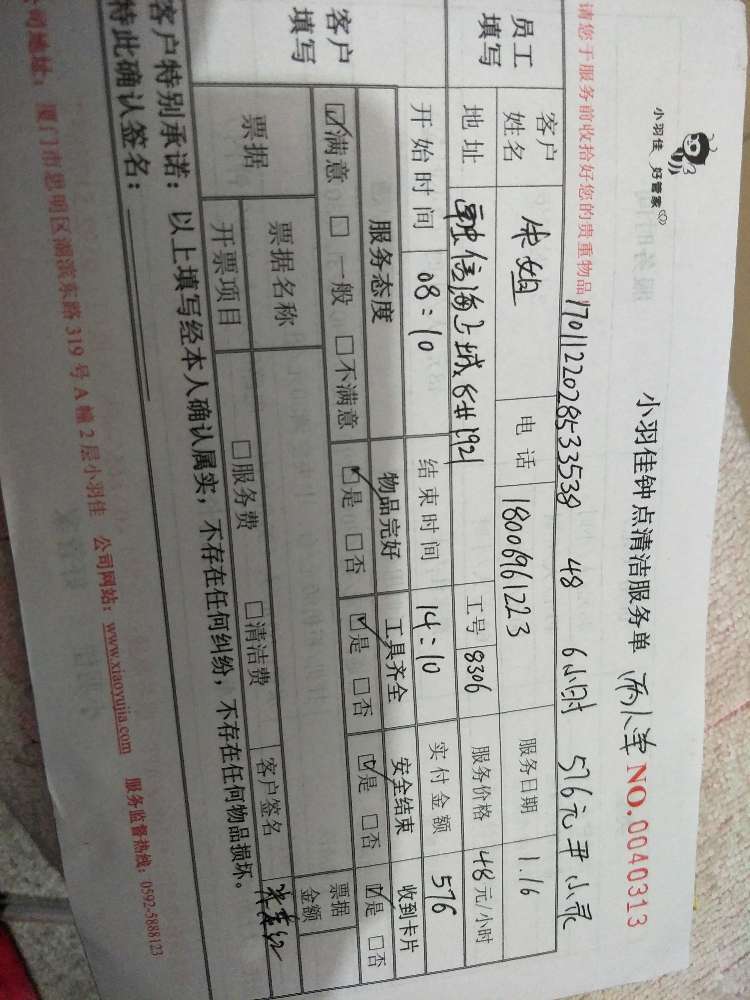 小羽佳 好管家
小羽佳钟点清洁服务单 两人单 NO.0040313
请您于服务前收拾好您的贵重物品
1701122028533538 48 6小时 576元 尹小灵
员工填写
客户姓名 电话 18006961223 服务日期 1.16
地址 融信海上城,8#1921 工号 8306 服务价格 48元/小时
开始时间 08:10 结束时间 14:10 实付金额 576
客户填写
服务态度 物品完好 工具齐全 安全结束 收到卡片
☑满意 □一般 □不满意 ☑是 □否 ☑是 □否 ☑是 □否 ☑是 □否
票据 票据名称 □服务费 □清洁费 票据金额
开票项目 客户签名
客户特别承诺:以上填写经本人确认属实,不存在任何纠纷,不存在任何物品损坏。
特此确认签名:
公司地址:厦门市思明区湖滨东路319号A幢2层小羽佳 公司网站:www.xiaoyujia.com 服务监督热线:0592-5888123